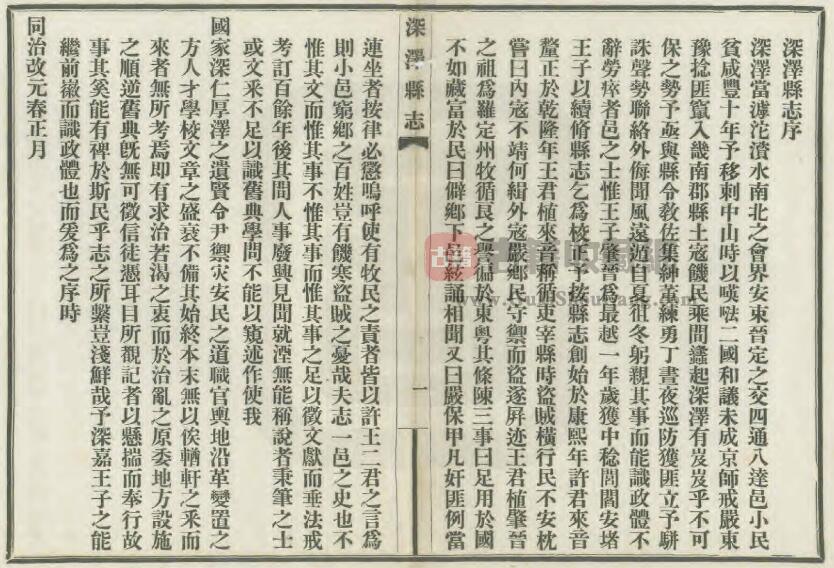 深澤縣志序
深澤當滹沱滋水南北之會界安束晉定之交四通八達邑小民
貧咸豐十年予移刺中山時以暎㗳二國和議未成京師戒嚴東
豫捻匪竄入畿南郡縣土寇饑民乘間蠭起深澤有岌岌乎不可
保之勢予亟與縣令敎佐集紳董練勇丁晝夜巡防獲匪立予駢
誅聲勢聯絡外侮聞風遠遁自夏徂冬躬親其事而能識政體不
辭勞瘁者邑之士惟王子肇晉爲最越一年歲獲中稔閭閻安堵
王子以續脩縣志乞爲校正予按縣志創始於康熙年許君來音
釐正於乾隆年王君植來音稱循吏宰縣時盜賊橫行民不安枕
嘗曰內寇不靖何緝外寇嚴鄉民守禦而盜遂屏迹王君植肇晉
之祖爲羅定州牧循良之譽溢於東粵其條陳三事曰足用於國
不如藏富於民曰僻鄉下邑絃誦相聞又曰嚴保甲凡奸匪例當
深澤縣志
一
連坐者按律必懲嗚呼使有牧民之責者皆以許王二君之言爲
則小邑窮鄉之百姓豈有饑寒盜賊之憂哉夫志一邑之史也不
惟其文而惟其事不惟其事而惟其事之足以徵文獻而垂法戒
考訂百餘年後其間人事廢興見聞就湮無能稱說者秉筆之士
或文釆不足以識舊典學問不能以窺述作使我
國家深仁厚澤之遺賢令尹禦灾安民之道職官輿地沿革變置之
方人才學校文章之盛衰不備其始終本末無以俟輶軒之釆而
來者無所考焉即有求治若渴之衷而於治亂之原委地方設施
之順逆舊典旣無可徵信徒憑耳目所覩記者以懸揣而奉行故
事其奚能有裨於斯民乎志之所繫豈淺鮮哉予深嘉王子之能
繼前徽而識政體也而爰爲之序時
同治改元春正月
古籍收藏網
www.GuJiShouCang.com